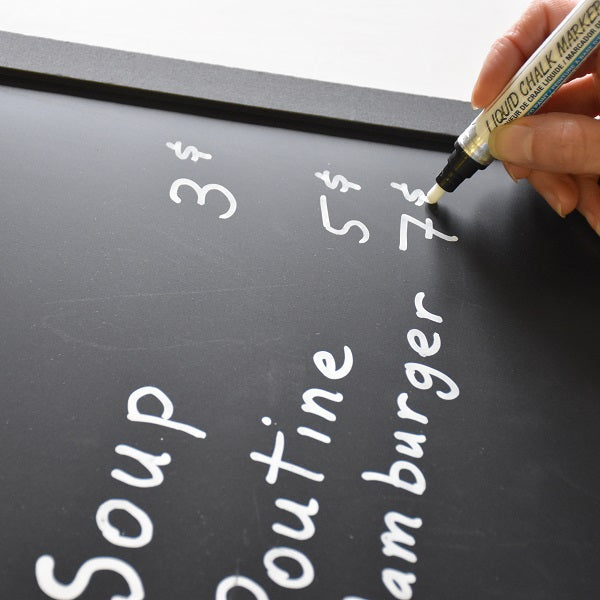 Soup 3$
Poutine 5$
Hamburger 7$
LIQUID CHALK MARKER
MARQUEUR DE CRAIE LIQUIDE / MARCADOR